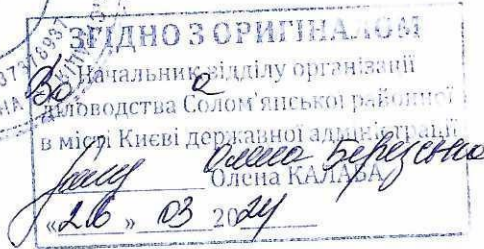 37378937
ЗГІДНО З ОРИГІНАЛОМ
Во Начальник відділу організації
діловодства Солом'янської районної
в місті Києві державної адміністрації
Олена Березська
Олена КАЛАБА
«26» 03 2024